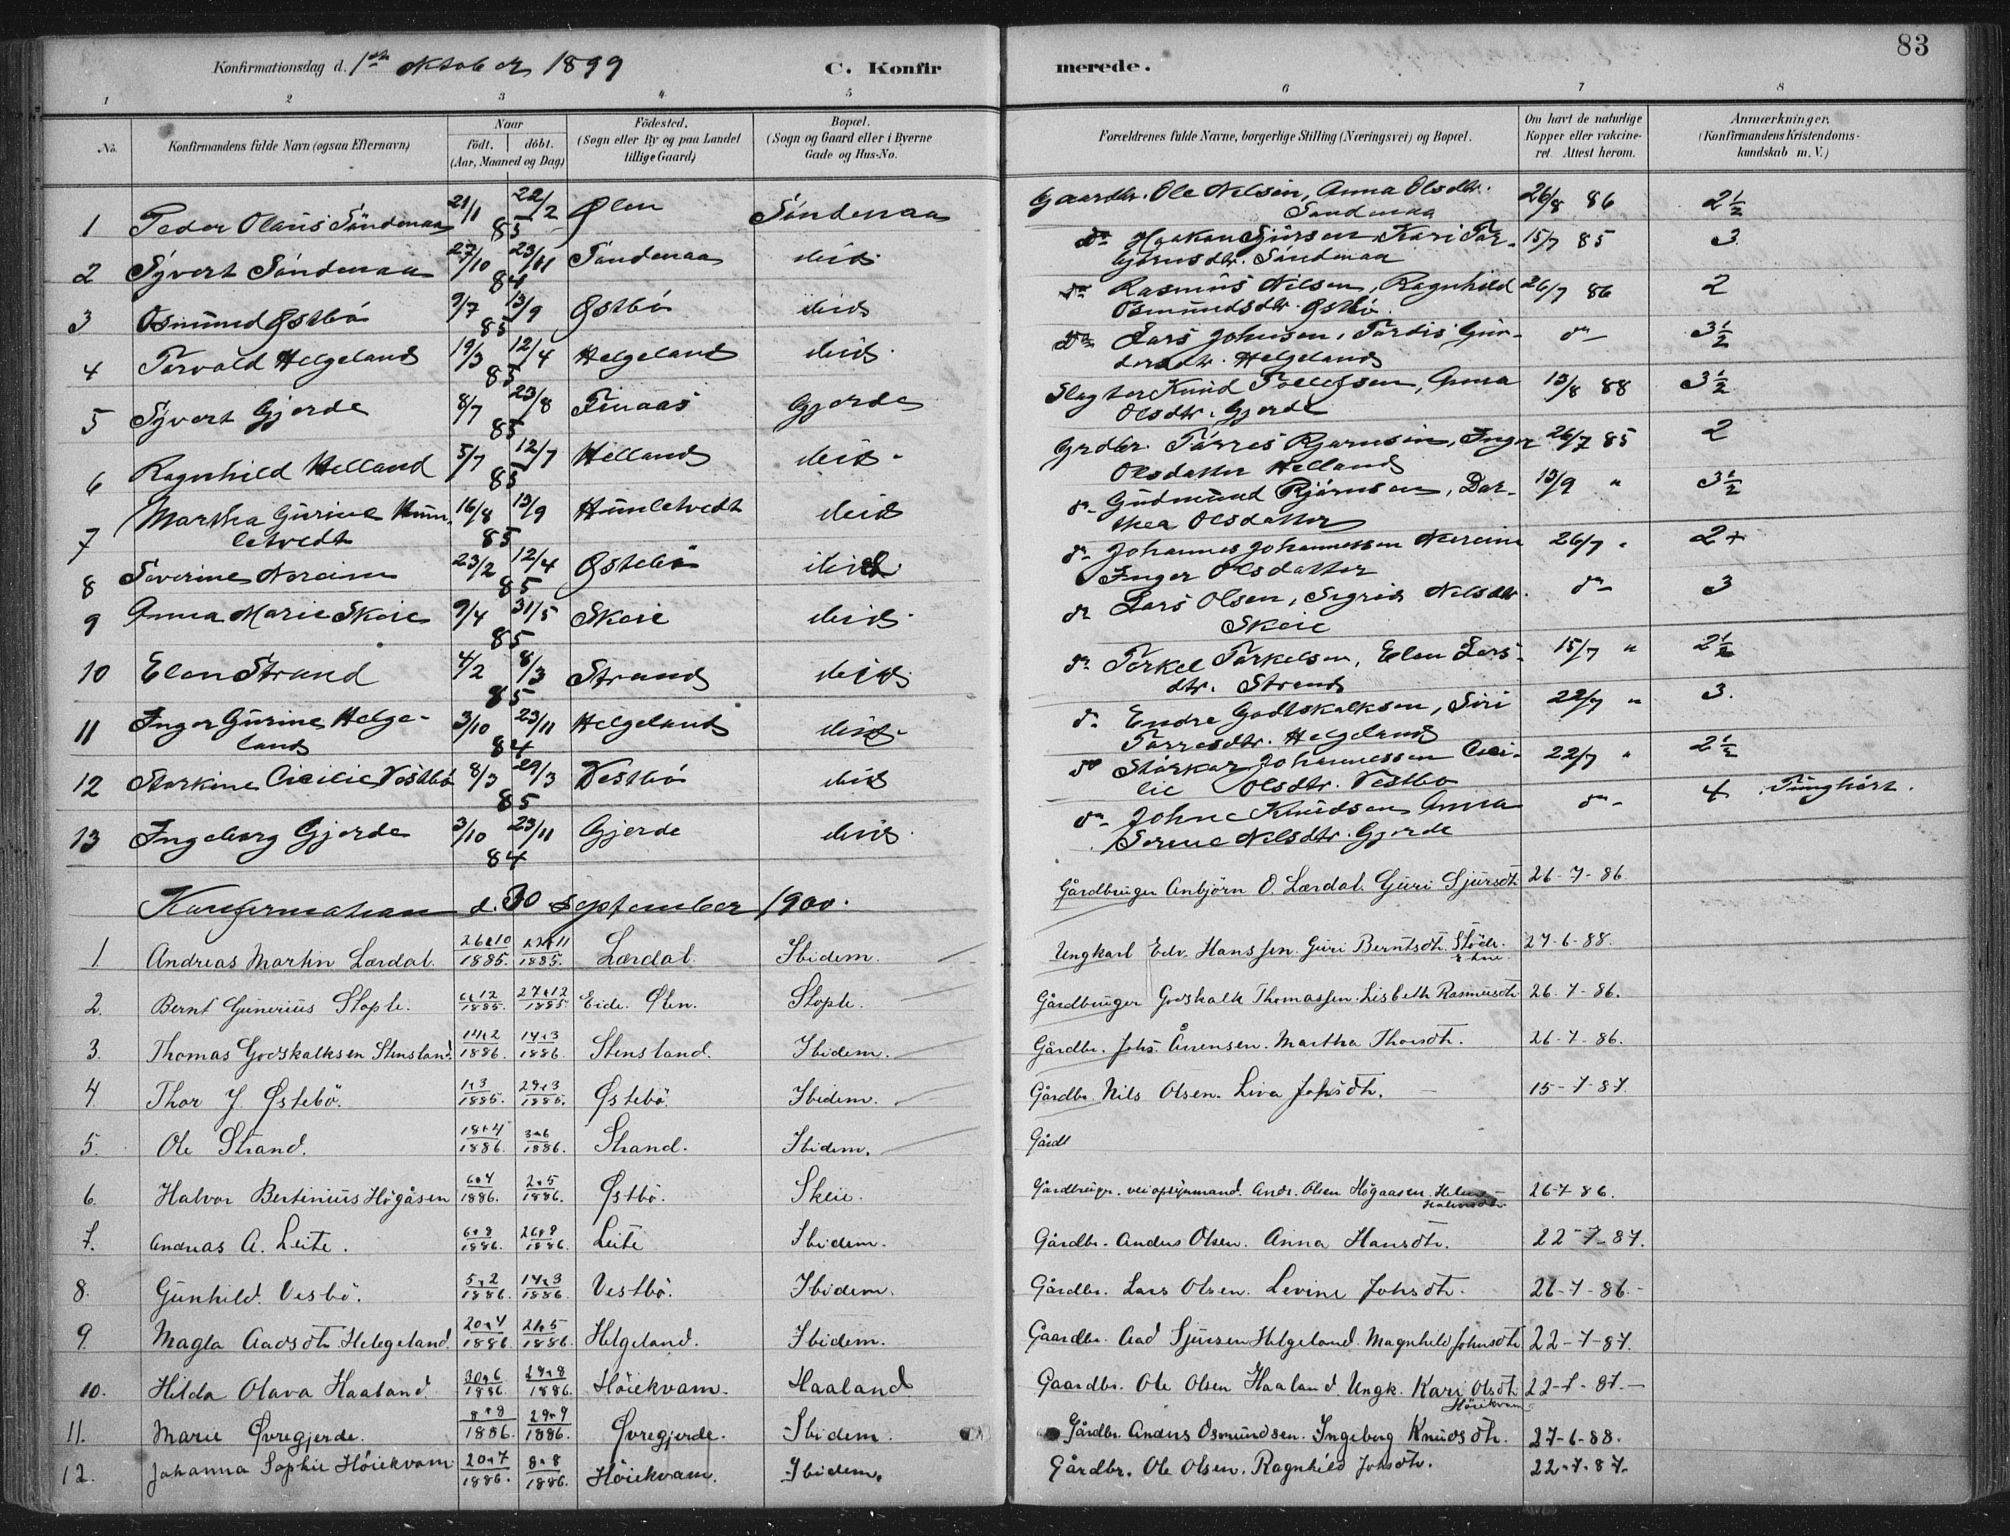 83
Konfirmationsdag d. 1ste Oktober 1899 C. Konfirmerede.
1 2 3 4 5 6 7 8
No. Konfirmandens fulde Navn (ogsaa Efternavn) Naar født. døbt. (Aar, Maaned og Dag) Fødested. (Sogn eller By og paa Landet tillige Gaard) Bopæl. (Sogn og Gaard eller i Byerne Gade og Hus-No. Forældrenes fulde Navne, borgerlige Stilling (Næringsvei) og Bopæl. Om havt de naturlige Kopper eller vaccineret. Attest herom. Anmærkninger. (Konfirmandens Kristendomskundskab m. V.)
1 Peder Olaus Søndenaa 21/1 22/2 85 Ølen Søndenaa Gaardbr. Ole Nilsen, Anna Olsdtr. Søndenaa 26/8 86 2½
2 Syvert Søndenaa 27/10 23/11 84 Søndenaa ibid. do Haakon Sjursen, Kari Torbjørnsdtr. Søndenaa 15/7 85 3
3 Osmund Østbø 9/7 13/9 85 Østbø ibid do Rasmus Nilsen, Ragnhild Osmundsdtr. Østbø 26/7 86 2
4 Torvald Helgeland 19/3 12/4 85 Helgeland ibid. do Lars Johnsen, Tordis Gundersdtr. Helgeland do 3½
5 Syvert Gjerde 8/7 23/8 85 Finaas Gjerde Slagter Knud Tollefsen, Anna Olsdtr. Gjerde 13/8 88 3½
6 Ragnhild Helland 5/7 12/7 85 Helland ibid. Grdbr. Tørres Bjørnsen, Inger Olsdatter Helland 26/7 85 2
7 Martha Gurine Humletvedt 16/8 13/9 85 Humletvedt ibid do Gudmund Bjørnsen, Dorthea Olsdatter 13/9 " 3½
8 Severine Nereim 23/2 12/4 85 Østebø ibid. do Johannes Johannessen Nereim Inger Olsdatter 26/7 " 2+
9 Anna Marie Skeie 9/4 31/5 85 Skeie ibid. do Lars Olsen, Sigrid Nilsdtr. Skeie do 3
10 Elen Strand 4/2 8/3 85 Strand ibid. do Torkel Torkelsen, Elen Larsdtr. Strand 15/7 " 2½
11 Inger Gurine Helgeland 3/10 23/11 84 Helgeland ibid. do Endre Godtskalksen, Siri Tørresdtr. Helgeland 22/7 " 3.
12 Størkine Cicilie Vestbø 8/3 29/3 85 Vestbø ibid do Størkar Johannessen Cicilie Olsdtr. Vestbø 22/7 " 2½
13 Ingeborg Gjerde 3/10 23/11 84 Gjerde ibid. do Johne Knudsen Anna Serine Nilsdtr. Gjerde do 4 Tunghørt.
Konfirmation d. 30 September 1900.
Gårdbruger Anbjørn O. Lærdal. Guri Sjursdt. 26-7-86.
1. Andreas Martin Lærdal. 26.10 1885. 22.11 1885. Lærdal. Ibidem. Ungkarl Edv. Hanssen. Guri Berntsdt. 27-6-88.
2. Bernt Gunerius Stople. 6.12 1885. 27.12 1885. Eide. Ølen. Stople. Gårdbruger Godskalk Thomassen. Lisbeth Rasmusdt. 26-7-86.
3. Thomas Godskalksen Stensland. 14.2 1886. 14.3 1886. Stensland. Ibidem. Gårdbr. Johs. Årrensen. Martha Thorsdt. 26-7-86.
4. Thor J. Østebø. 1.3 1885. 29.3 1885. Østebø. Ibidem. Gårdbr. Nils Olsen. Liva Johsdtr. 15-7-87.
5. Ole Strand. 18.4 1886. 3.6 1886. Strand. Ibidem. Gårdt
6. Halvor Bertinius Høgåsen 6.4 1886. 2.5 1886. Østbø. Skeie. Gårdbruger. veiopsynmand. Ands. Olsen Høgaasen. Helene Halvorsdtr. 26-7-86.
7. Andreas A. Leite. 6.8 1886. 26.9 1886. Leite Ibidem. Gårdbr. Anders Olsen. Anna Hansdtr. 22-7-87.
8. Gunhild Vesbø. 5.2 1886. 14.3 1886. Vestbø. Ibidem. Gårdbr. Lars Olsen. Levine Johsdtr. 26-7-86.
9. Magla Aadsdtr. Helegeland. 20.4 1886. 21.5 1886. Helgeland. Ibidem. Gaardbr. Aad Sjursen Helgeland. Magnhild Johnsdt. 22-7-87.
10. Hilda Olava Haaland. 30.6 1886. 29.8 1886. Høiekvam. Haaland Gaardbr. Ole Olsen Haaland Ungk. Kari Olsdt. Høiekvam 22-7-87.
11. Marie Øvregjerde. 8.8 1886. 29.9 1886. Øvregjerde. Ibidem. Gårdbr. Anders Osmundsen. Ingeborg Knudsdtr. 27-6-88.
12. Johanna Sophie Høiekvam 20.7 1886. 8.8 1886. Høiekvam. Ibidem. Gårdbr. Ole Olsen. Ragnhild Johsdtr. 22-7-87.